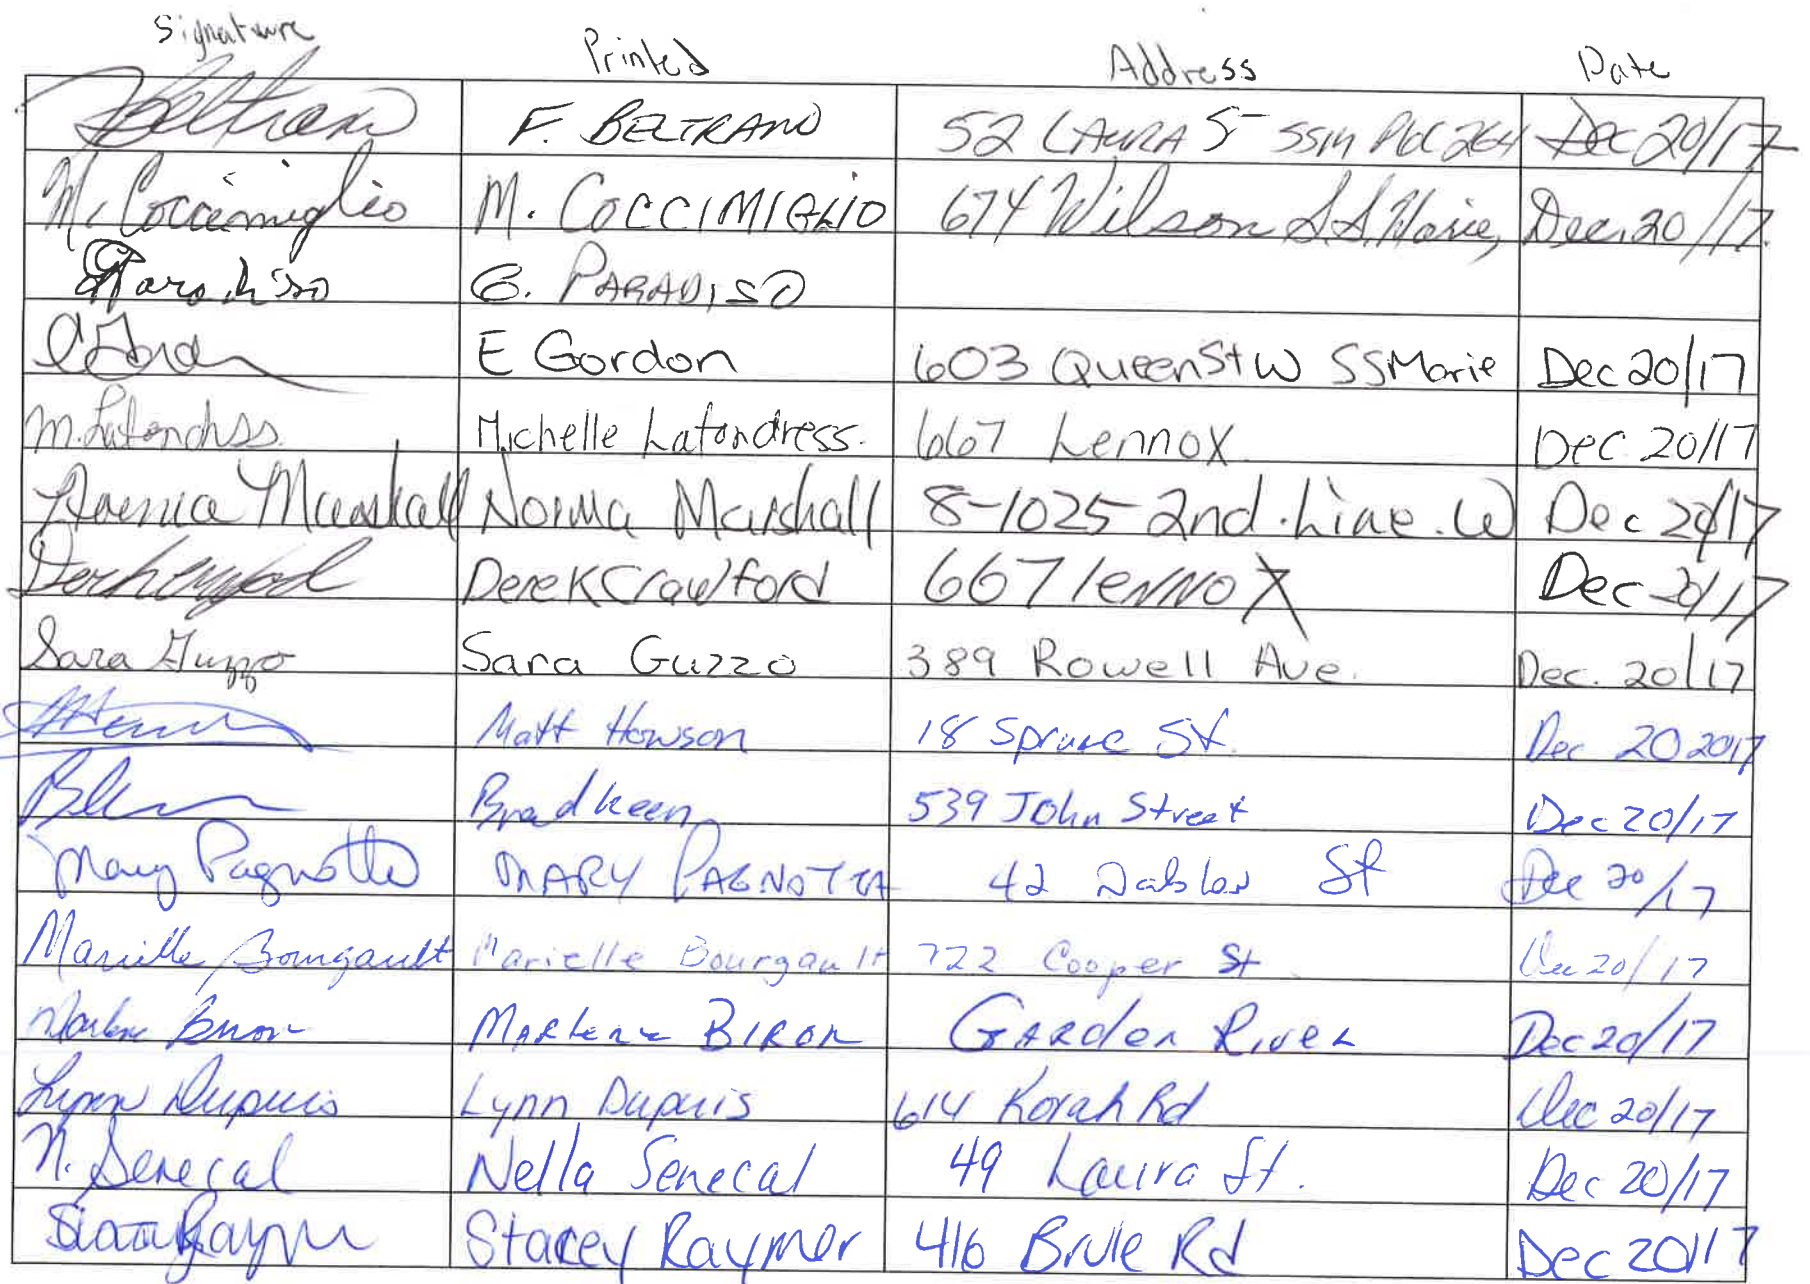 Signature Printed Address Date
FBeltrano F. BELTRANO 52 LAURA ST SSM P6C 2G4 Dec 20/17
M. Coccimiglio M. COCCIMIGLIO 674 Wilson S.S. Marie, Dec. 20/17.
G Paradiso G. PARADISO
E Gordon E Gordon 603 Queen St W SSMarie Dec 20/17
M. Lafondress. Michelle Lafondress. 667 Lennox Dec 20/17
Norma Marshall Norma Marshall 8-1025 2nd. Line. W Dec 20/17
Derek Crawford 667 lennox Dec 20/17
Sara Guzzo Sara Guzzo 389 Rowell Ave. Dec. 20/17
Matt Howson 18 Spruce St. Dec 20 2017
Brad Keen 539 John Street Dec 20/17
Mary Pagnotta MARY PAGNOTTA 42 St Dec 20/17
Marielle Bourgault Marielle Bourgault 722 Cooper St. Dec 20/17
Marlene Biron MARLENE BIRON GARden RiveR Dec 20/17
Lynn Dupuis Lynn Dupuis 614 Korah Rd Dec 20/17
N. Senecal Nella Senecal 49 Laura St. Dec 20/17
Stacey Raymer 416 Brule Rd Dec 20/17